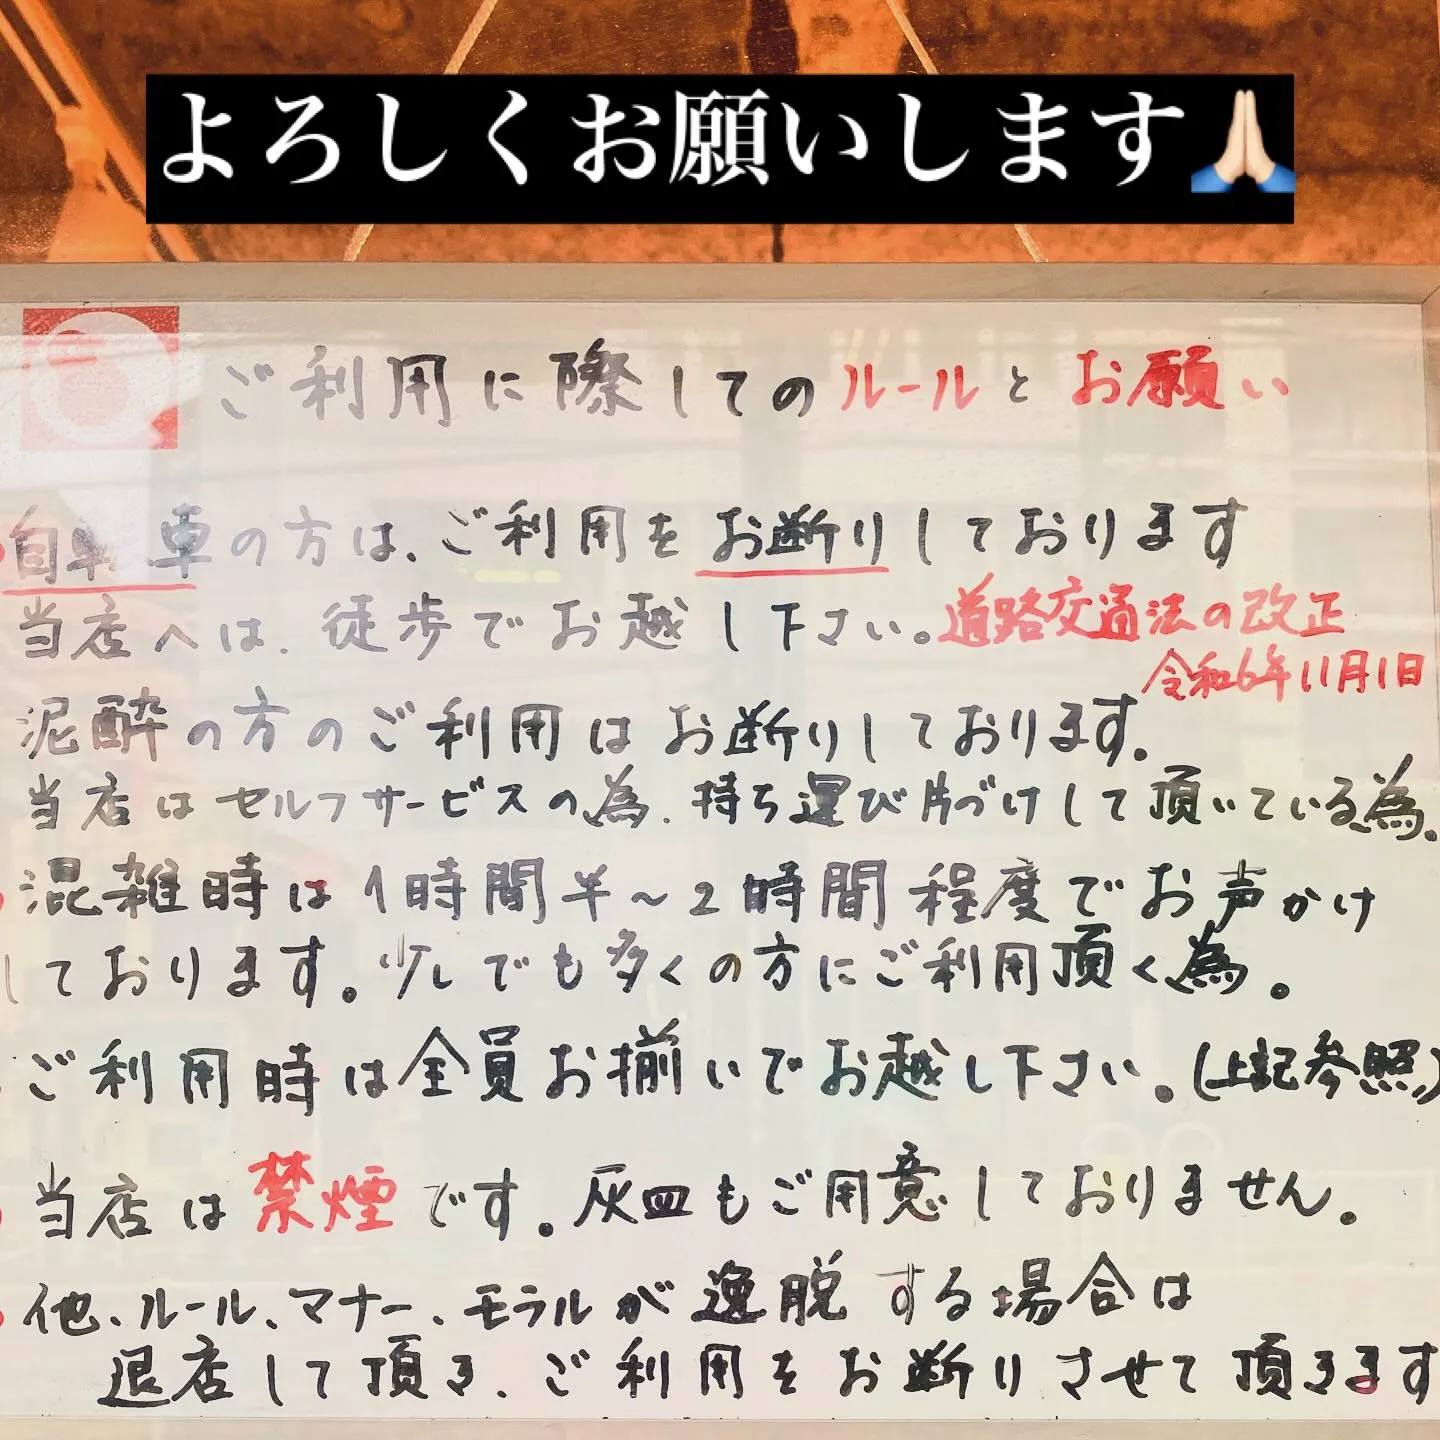 よろしくお願いします🙏🏻
ご利用に際してのルールとお願い
自転車の方は、ご利用をお断りしております
当店へは、徒歩でお越し下さい。道路交通法の改正
令和6年11月1日
泥酔の方のご利用はお断りしております。
当店はセルフサービスの為、持ち運び片づけして頂いている為。
混雑時は1時間半~2時間程度でお声かけ
しております。少しでも多くの方にご利用頂く為。
ご利用時は全員お揃いでお越し下さい。(上記参照)
当店は禁煙です。灰皿もご用意しておりません。
他、ルール、マナー、モラルが逸脱する場合は
退店して頂き、ご利用をお断りさせて頂きます